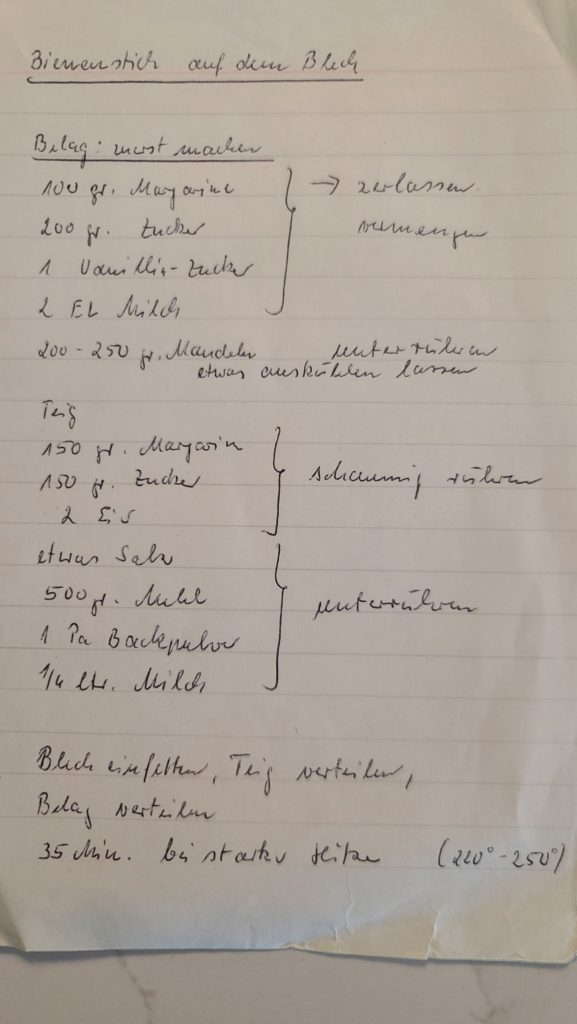 Bienenstich auf dem Blech
Belag: zuerst machen
100 gr. Margarine → zerlassen
200 gr. Zucker vermengen
1 Vanillin-Zucker
2 EL Milch
200-250 gr. Mandeln unterrühren
etwas auskühlen lassen
Teig
150 gr. Margarine
150 gr. Zucker schaumig rühren
2 Eis
etwas Salz
500 gr. Mehl unterrühren
1 Pa Backpulver
1/4 ltr. Milch
Blech einfetten, Teig verteilen,
Belag verteilen
35 Min. bei starker Hitze (220° - 250°)